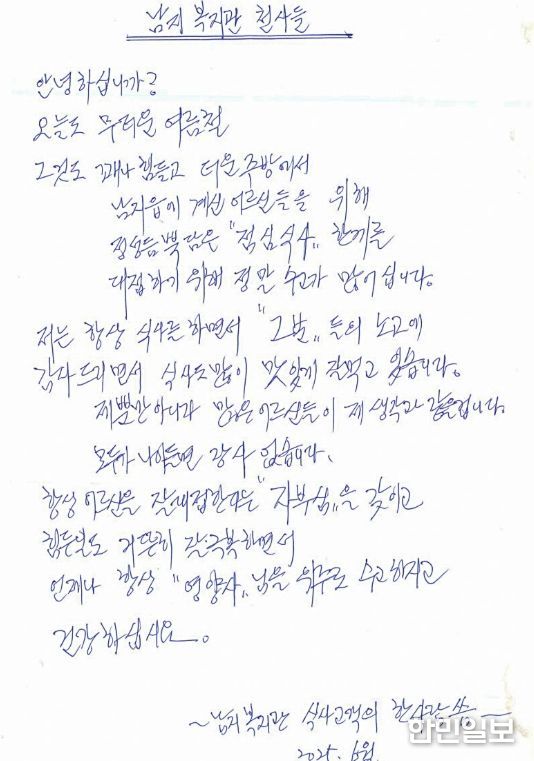 남지 복지관 천사들
안녕하십니까?
오늘도 무더운 여름철
그것도 꽤나 힘들고 더운 주방에서
남지읍에 계신 어르신들을 위해
정성듬뿍 담은 "점심식사" 한끼를
대접하기 위해 정말 수고가 많으십니다.
저는 항상 식사를 하면서 "그분"들의 노고에
감사드리면서 식사도 많이 맛있게 잘먹고 있습니다.
제뿐만아니라 많은 어르신들이 제 생각과 같을겁니다.
모두가 나이들면 장사 없습니다.
항상 어르신을 잘대접한다는 "자부심"을 갖이고
힘든일도 거뜬히 잘극복하면서
언제나 항상 "영양사"님을 위주로 수고하시고
건강하십시요.
~남지복지관 식사고객의 한사람 씀~
2025. 6월
한민일보